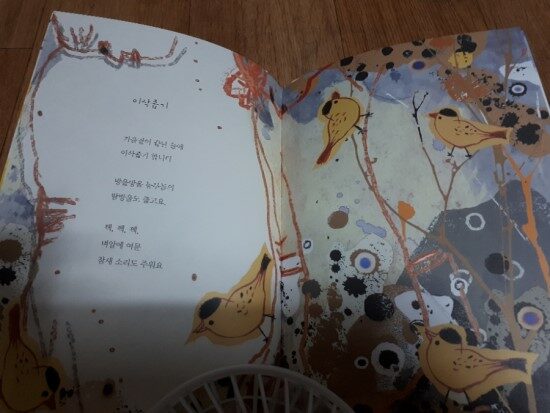 이삭줍기
가을걷이 끝난 논에
이삭줍기 갑니다
방울방울 농부들의
땀방울도 줍고요.
짹, 짹, 짹,
벼알에 여문
참새 소리도 주워요.